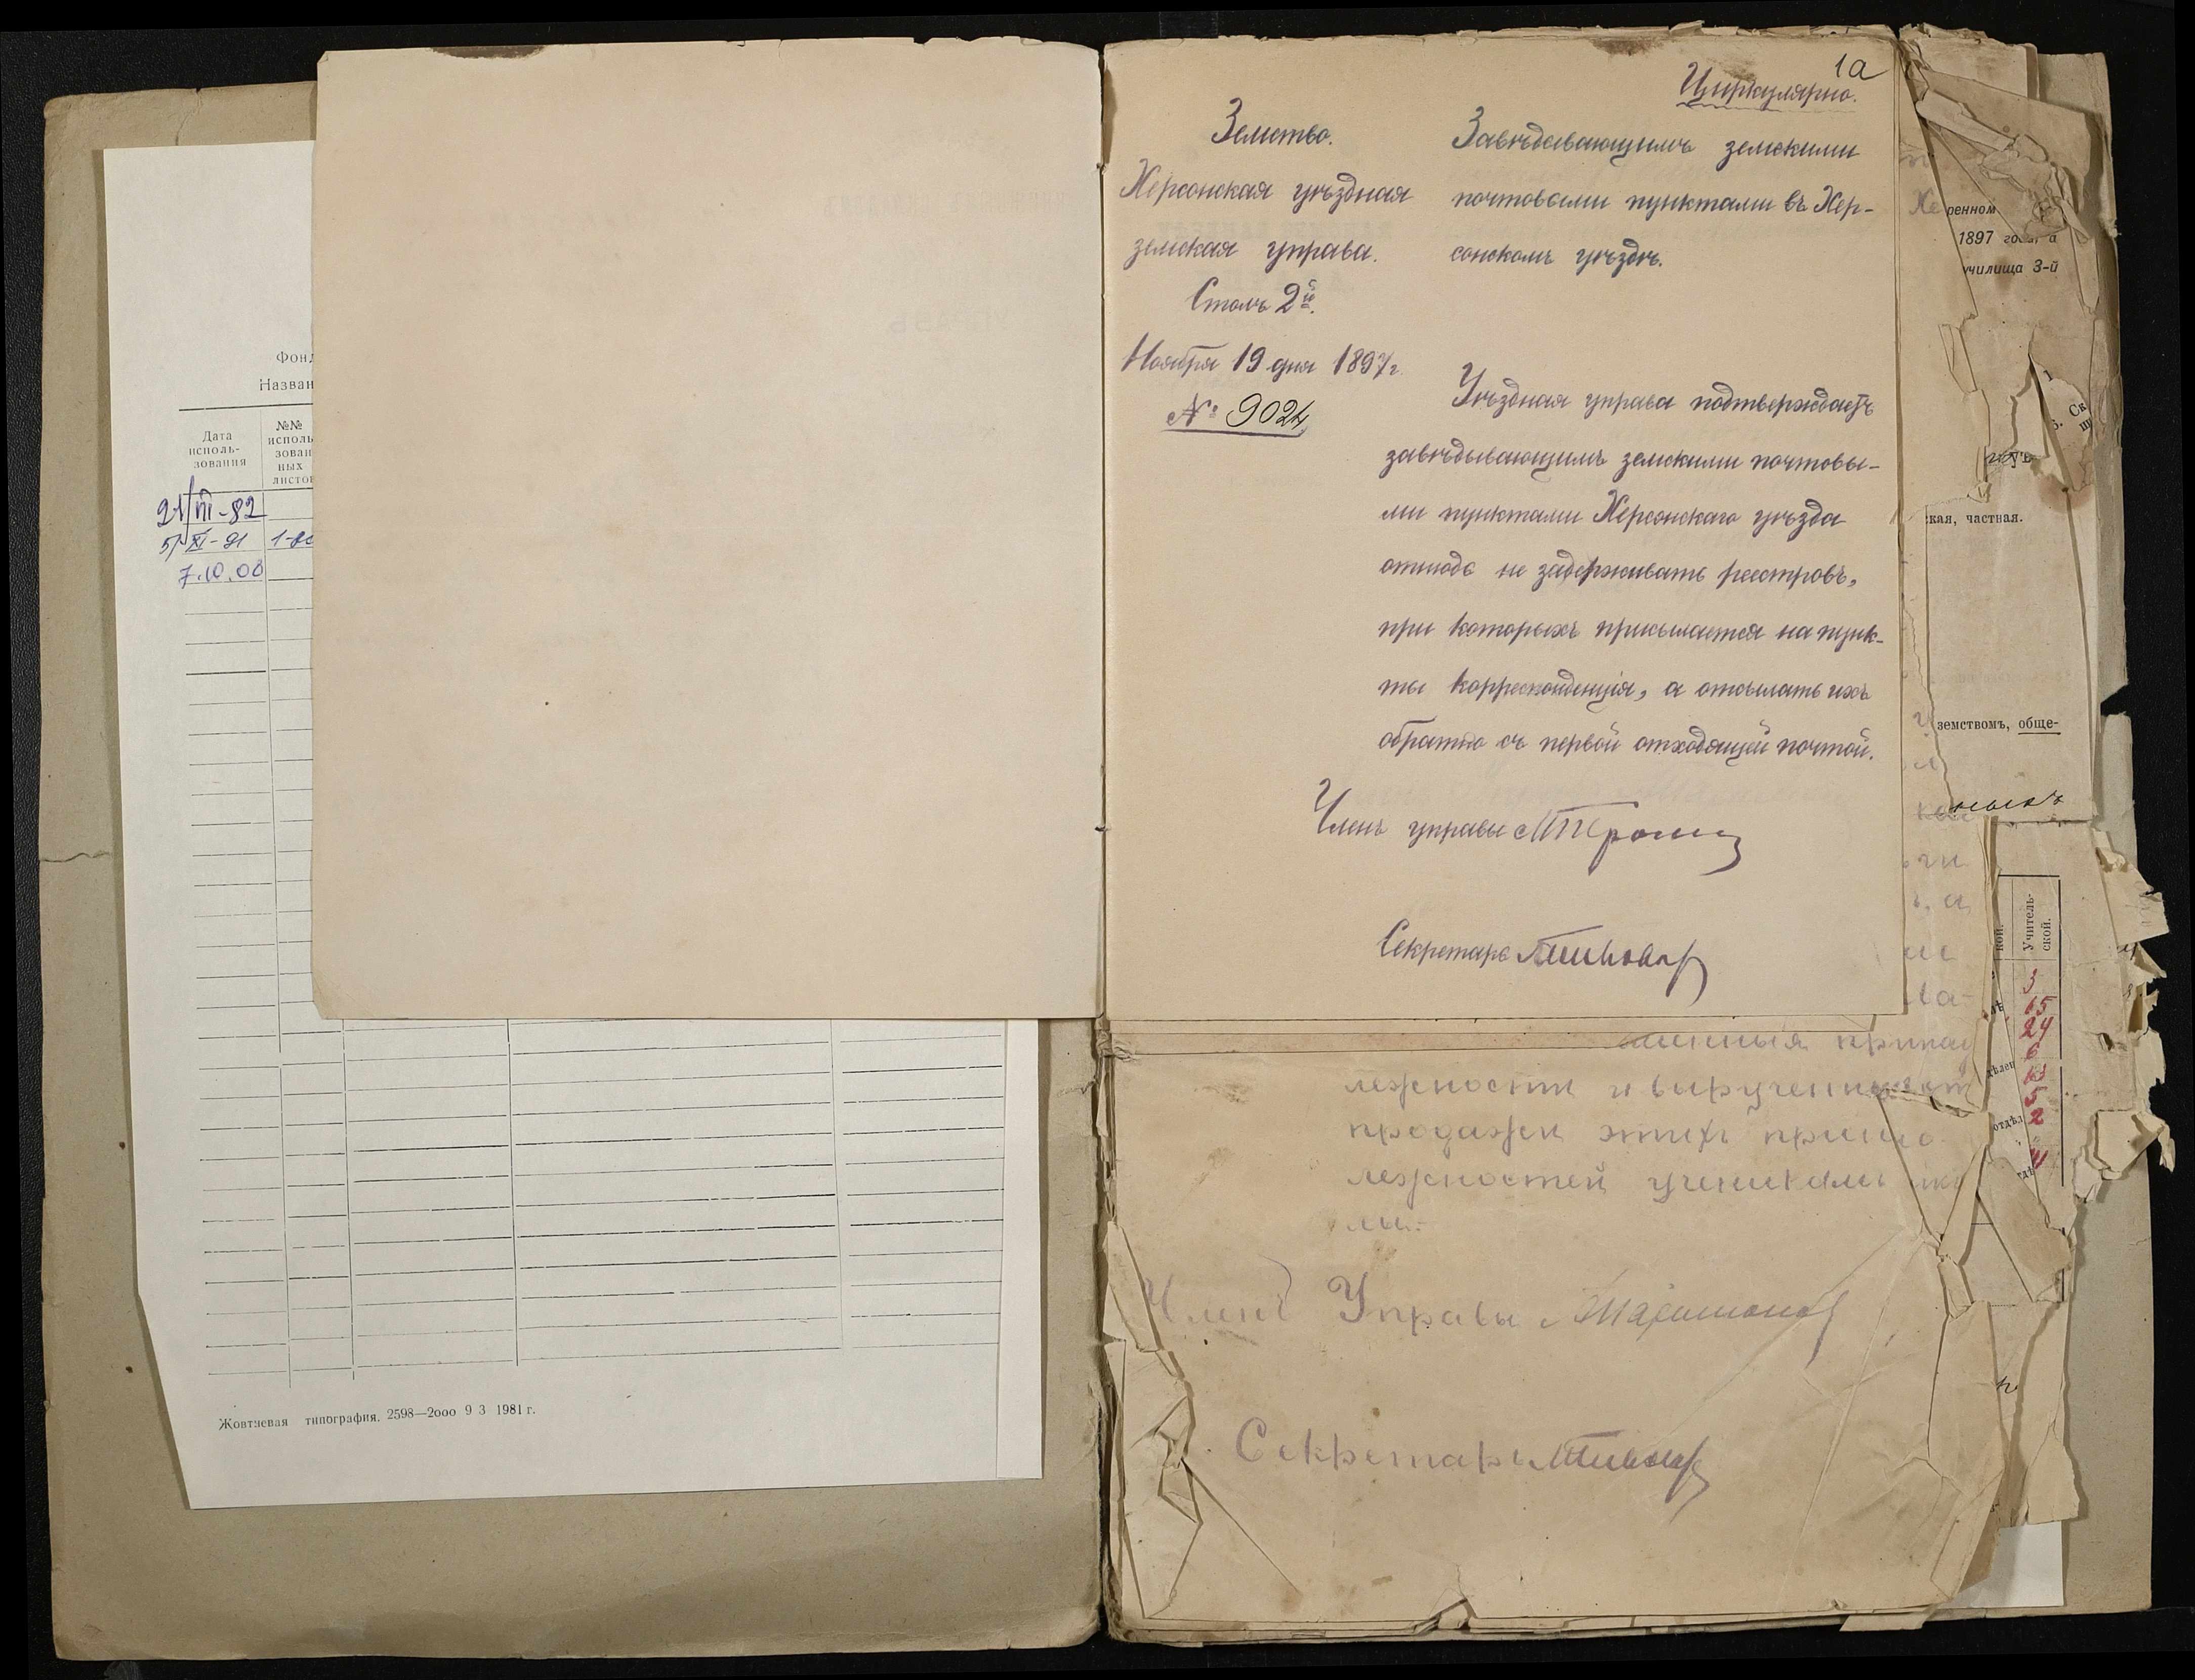 1а
Циркулярно.
Земство.
Херсонская уѣздная
земская управа.
Столъ 2й.
Ноября 19 дня 1897 г.
№ 9024
Завѣдывающимъ земскими
почтовыми пунктами въ Хер-
сонскомъ уѣздѣ.
Уѣздная управа подтверждаетъ
завѣдывающимъ земскими почтовы-
ми пунктами Херсонскаго уѣзда
отнюдь не задерживать реестровъ,
при которыхъ присылается на пунк-
ты корреспонденція, а отсылать ихъ
обратно съ первой отходящей почтой.
Членъ управы
Секретарь
лежности и вырученныя от
продажи этихъ
лежностей ученикамъ
Членъ Управы
Секретарь
Фонд
Назван
Дата
исполь-
зования
№№
исполь
зован
ных
листов
21/VII-82
5/XI-91
7.10.08
Жовтневая типография. 2598—2000 9 3 1981 г.
ренном
1897 года, а
училища 3-й
ская, частная.
земствомъ, обще-
Учитель-
ской.
кой.
3
65
24
6
63
5
2
отдѣл